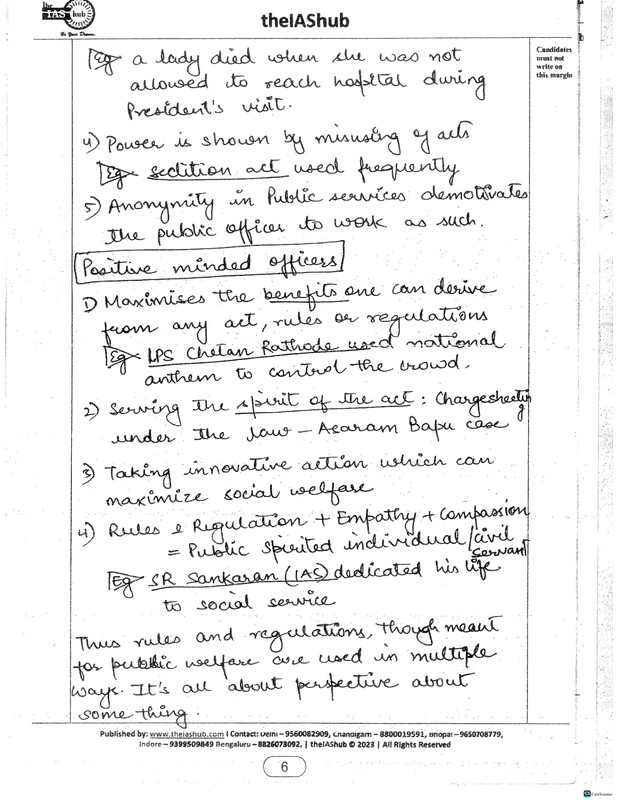 the
IAS hub
Be Your Dream
theIAShub
Candidates
must not
write on
this margin
Eg a lady died when she was not
allowed to reach hospital during
President's visit.
4) Power is shown by misusing of acts
Eg sedition act used frequently
5) Anonymity in Public services demotivates
the public officer to work as such.
Positive minded officers
1) Maximises the benefits one can derive
from any act, rules or regulations
Eg IPS Chetan Rathode used national
anthem to control the crowd.
2) Serving the spirit of the act : Chargesheeting
under the law – Asaram Bapu case
3) Taking innovative action which can
maximize social welfare
4) Rules & Regulation + Empathy + Compassion
= Public spirited individual/civil
servant
Eg SR Sankaran (IAS) dedicated his life
to social service
Thus rules and regulations, though meant
for public welfare are used in multiple
ways. It's all about perspective about
some thing.
Published by: www.theiashub.com I Contact: Delhi – 9560082909, Chandigarh – 8800019591, Bhopal –9650708779,
Indore – 9399509849 Bengaluru – 8826073092, | theIAShub © 2023 | All Rights Reserved
6
CS CamScanner